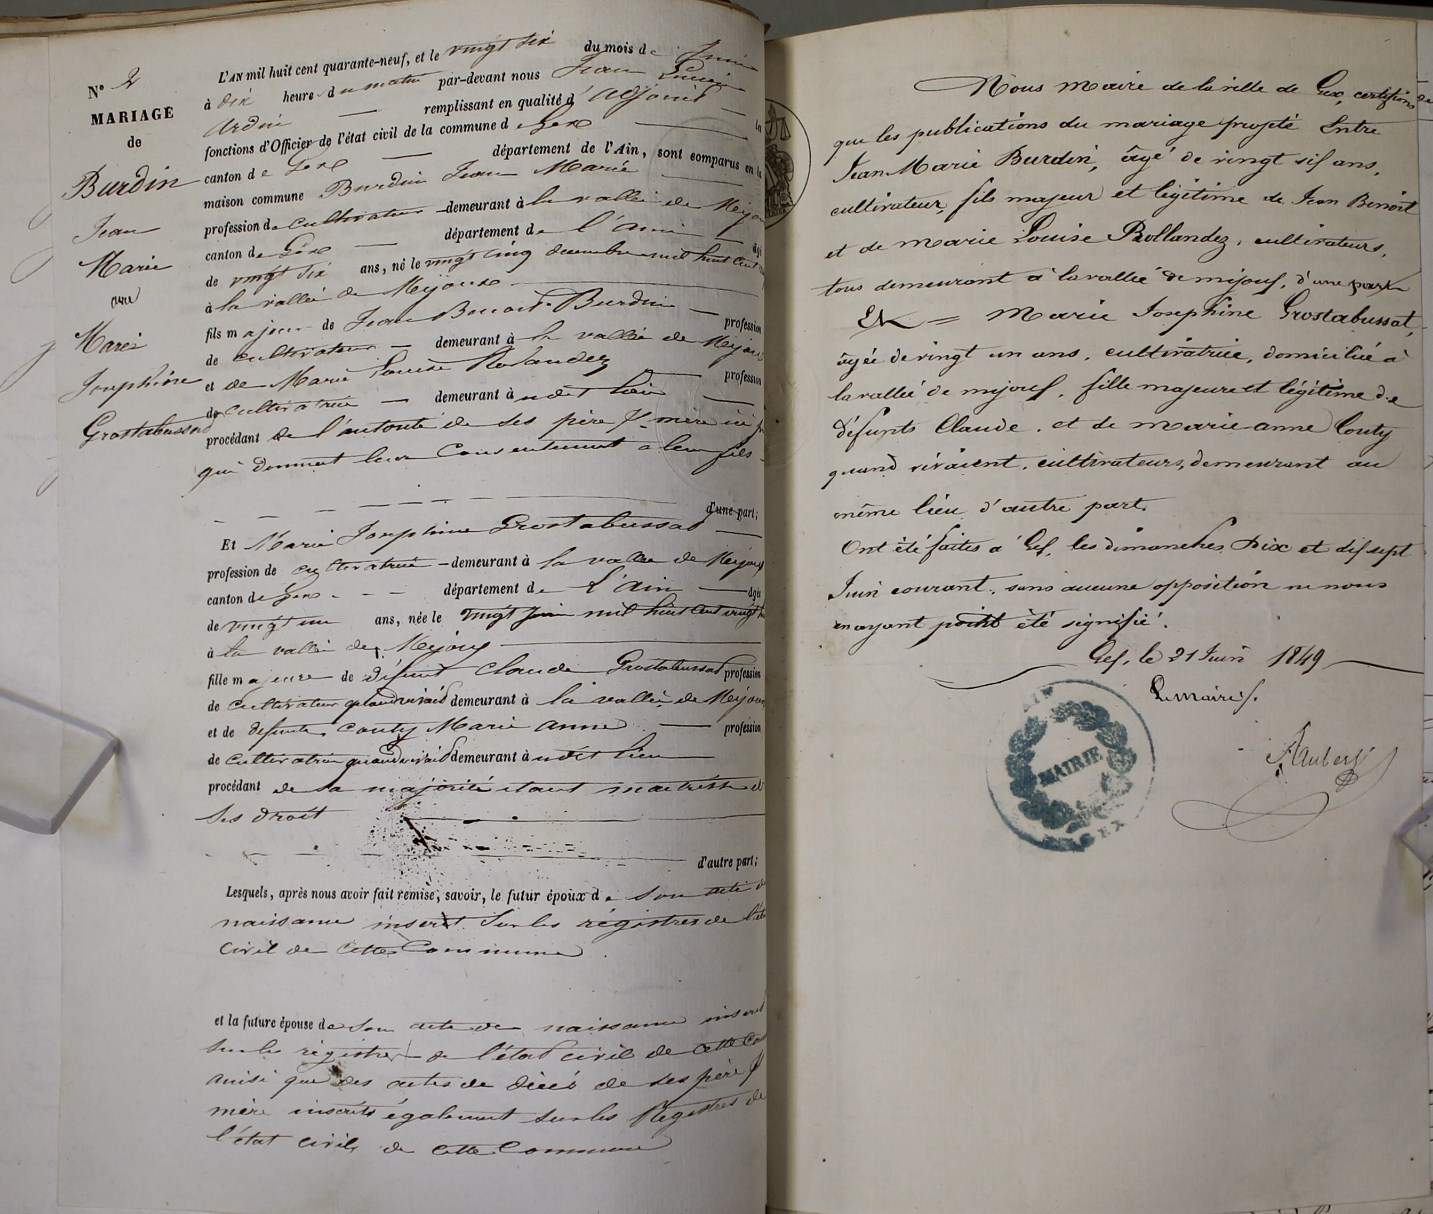 N° 2
MARIAGE
de
Burdin
Jean
Marie
avec
Marie
Josephine
Grostabussat
L'AN mil huit cent quarante-neuf, et le vingt six du mois de Juin
à dix heure du matin par-devant nous Jean Louis
Ardin remplissant en qualité d'adjoint la
fonctions d'Officier de l'état civil de la commune de Gex
canton de Gex département de l'Ain, sont comparus en la
maison commune Burdin Jean Marie
profession de cultivateur demeurant à la vallée de Mijoux
canton de Gex département de l'ain âgé
de vingt six ans, né le vingt cinq decembre mil huit cent
à la vallée de Mijoux
fils majeur de Jean Benoit Burdin profession
de cultivateur demeurant à la vallée de Mijoux
et de Marie Louise Rolandez profession
de cultivatrice demeurant à udit lieu
procédant de l'autorité de ses père & mère ici
qui donnent leur consentement a leur fils
d'une part;
Et Marie Josephine Grostabussat
profession de cultivatrice demeurant à la vallée de Mijoux
canton de Gex département de L'ain âgée
de vingt un ans, née le vingt juin mil huit cent vingt
à la vallée de Mijoux
fille majeure de défunt Claude Grostabussat profession
de cultivateur quand vivait demeurant à la vallée de Mijoux
et de defunte Couty Marie anne profession
de cultivatrice quand vivait demeurant à udit lieu
procédant de sa majorité etant maitresse de
ses droit
d'autre part;
Lesquels, après nous avoir fait remise, savoir, le futur époux de son acte de
naissance inserit sur les régistres de l'état
civil de cette Commune
et la future épouse de son acte de naissance inserit
sur les régistres de l'état civil de cette
ainsi que des actes de décés de ses père &
mère inscrits également sur les Registres de
l'état civil de cette Commune
Nous maire de la ville de Gex, certifions
que les publications du mariage projeté Entre
Jean Marie Burdin, âgé de vingt six ans,
cultivateur, fils majeur et légitime de Jean Benoit
et de marie Louise Rollandez, cultivateurs,
tous demeurant à la vallée de mijoux, d'une part
Et = Marie Josephine Grostabussat,
âgée de vingt un ans, cultivatrice, domiciliée à
la vallée de mijoux, fille majeure et légitime de
défunts Claude, et de marie anne Couty
quand vivaient, cultivateurs, demeurant au
même lieu d'autre part.
Ont été faites à Gex, les dimanches Dix et dix sept
Juin courant, sans aucune opposition ne nous
en ayant point été signifié.
Gex, le 21 Juin 1849
Le maire
MAIRIE
GEX